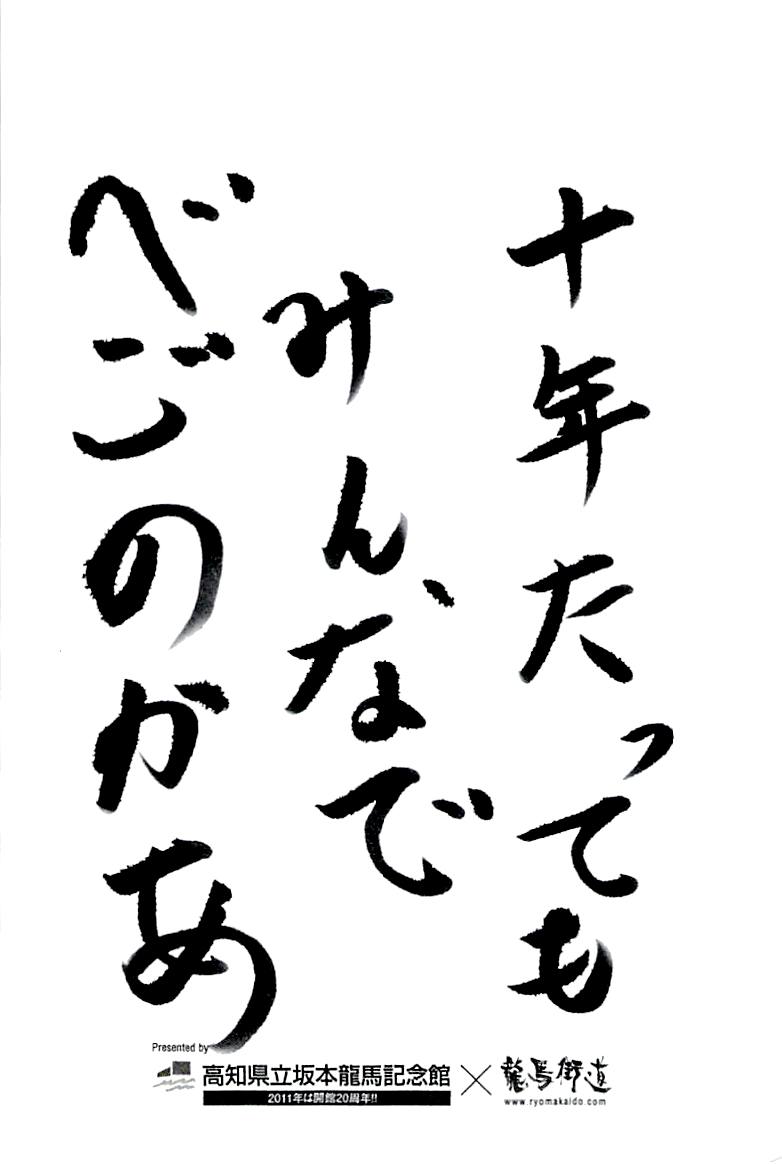 十年たっても
みんなで
べごのかあ
Presented by
高知県立坂本龍馬記念館
2011年は開館20周年!!
×
龍馬街道
www.ryomakaido.com